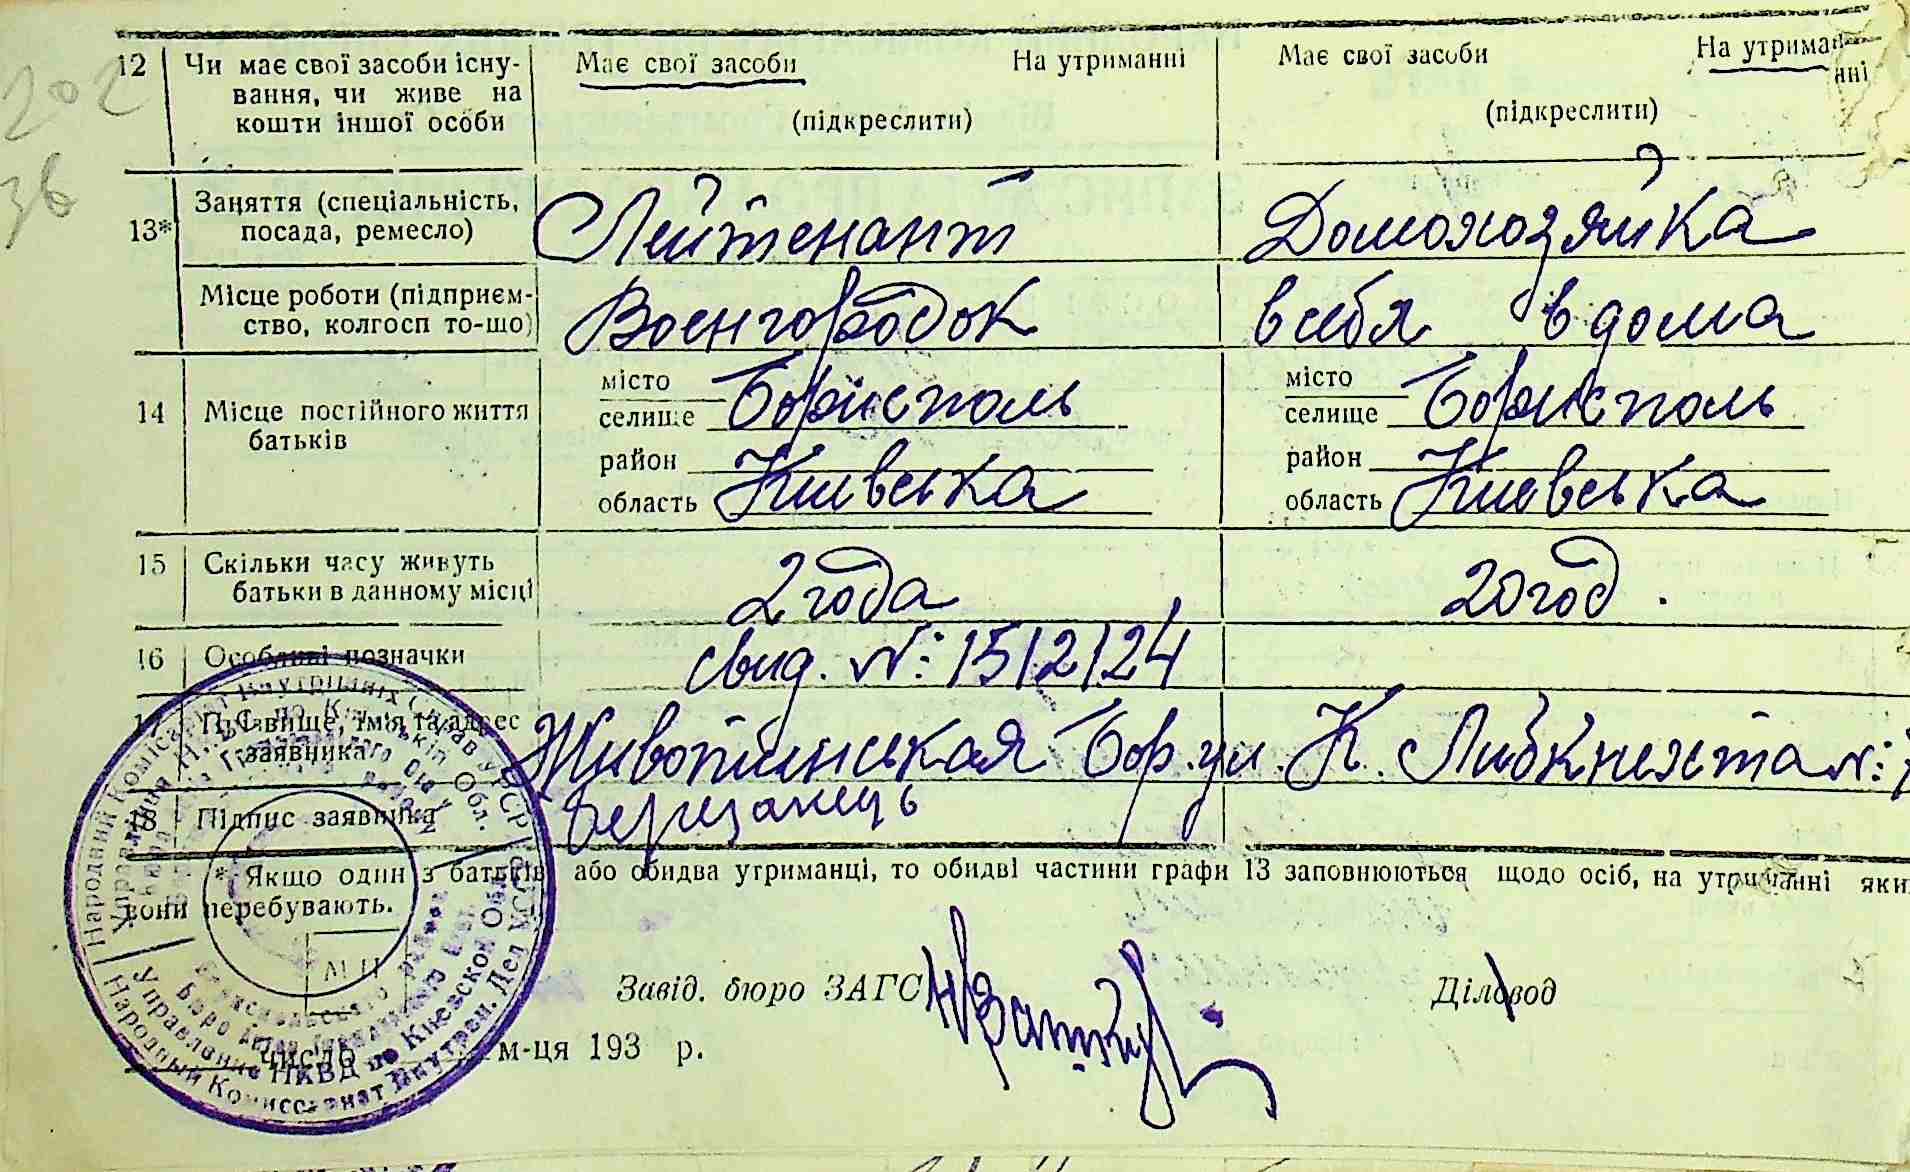 202
36
12 Чи має свої засоби існування, чи живе на кошти іншої особи
Має свої засоби На утриманні
(підкреслити)
Має свої засоби На утриманні
(підкреслити)
13* Заняття (спеціальність, посада, ремесло)
Лейтенант
Домохозяйка
Місце роботи (підприємство, колгосп то-що)
Военгородок
в себя в дома
14 Місце постійного життя батьків
місто
селище Борисполь
район
область Киивська
місто
селище Борисполь
район
область Киевська
15 Скільки часу живуть батьки в данному місці
2 года
20 год.
16 Особливі позначки
свид. №: 1512124
17 Прізвище, імя та адрес заявника
Животинськая Бор. ул. К. Либкнехта №:
18 Підпис заявника
* Якщо один з батьків або обидва утриманці, то обидві частини графи 13 заповнюються щодо осіб, на утриманні яки
вони перебувають.
М П
Завід. бюро ЗАГС
Діловод
число м-ця 193 р.
Народний Комісаріат Внутрішніх Справ УСРР
Управління НКВС по Київській Обл.
Народный Комиссариат Внутрен. Дел УССР
Управление НКВД по Киевской Обл.